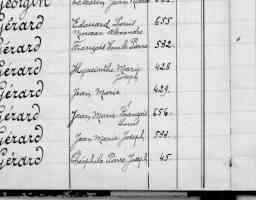 Georgin
Gérard Edouard Louis 655.
Gérard François Emile Pierre 532.
Gérard Hyacinthe Marie Joseph 428
Gérard Jean Marie 429.
Gérard Jean Marie François Louis 656.
Gérard Jean Marie Joseph
Gérard Théophile Pierre Joseph 45.